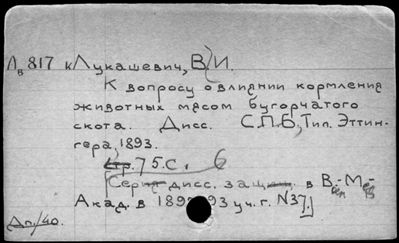 Лв 817 к Лукашевич, В. И.
К вопросу о влиянии кормления
животных мясом бугорчатого
скота. Дисс. С.П.Б, Тип. Эттин-
гера, 1893.
75.С.
Серия дисс. защищ. в В.-Ме-
Акад. в 1892/93 уч. г. №37.
Дп/40.